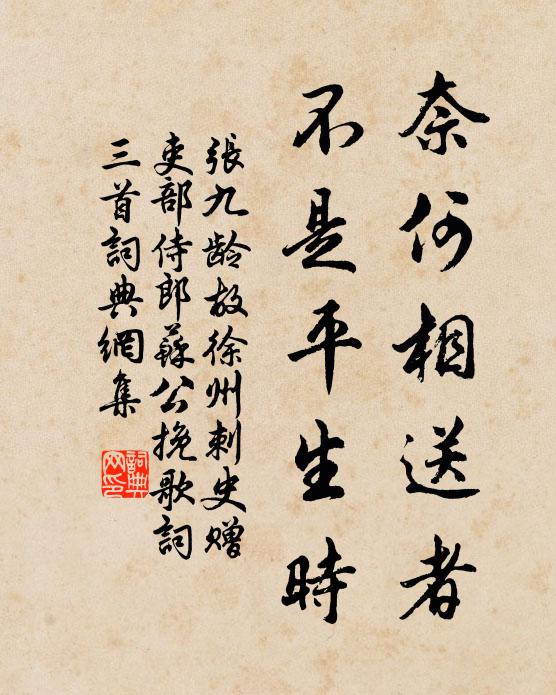 奈何相送者
不是平生時
張九龄故徐州刺史赠
吏部侍郎蘇公挽歌詞
三首詞典網集
詞典
网印